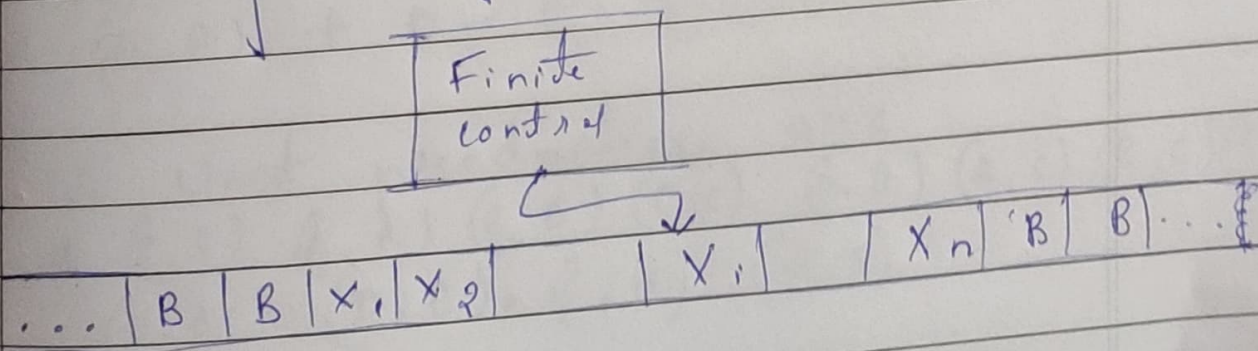 Finite
control
... B B X1 X2 Xi Xn B B ...